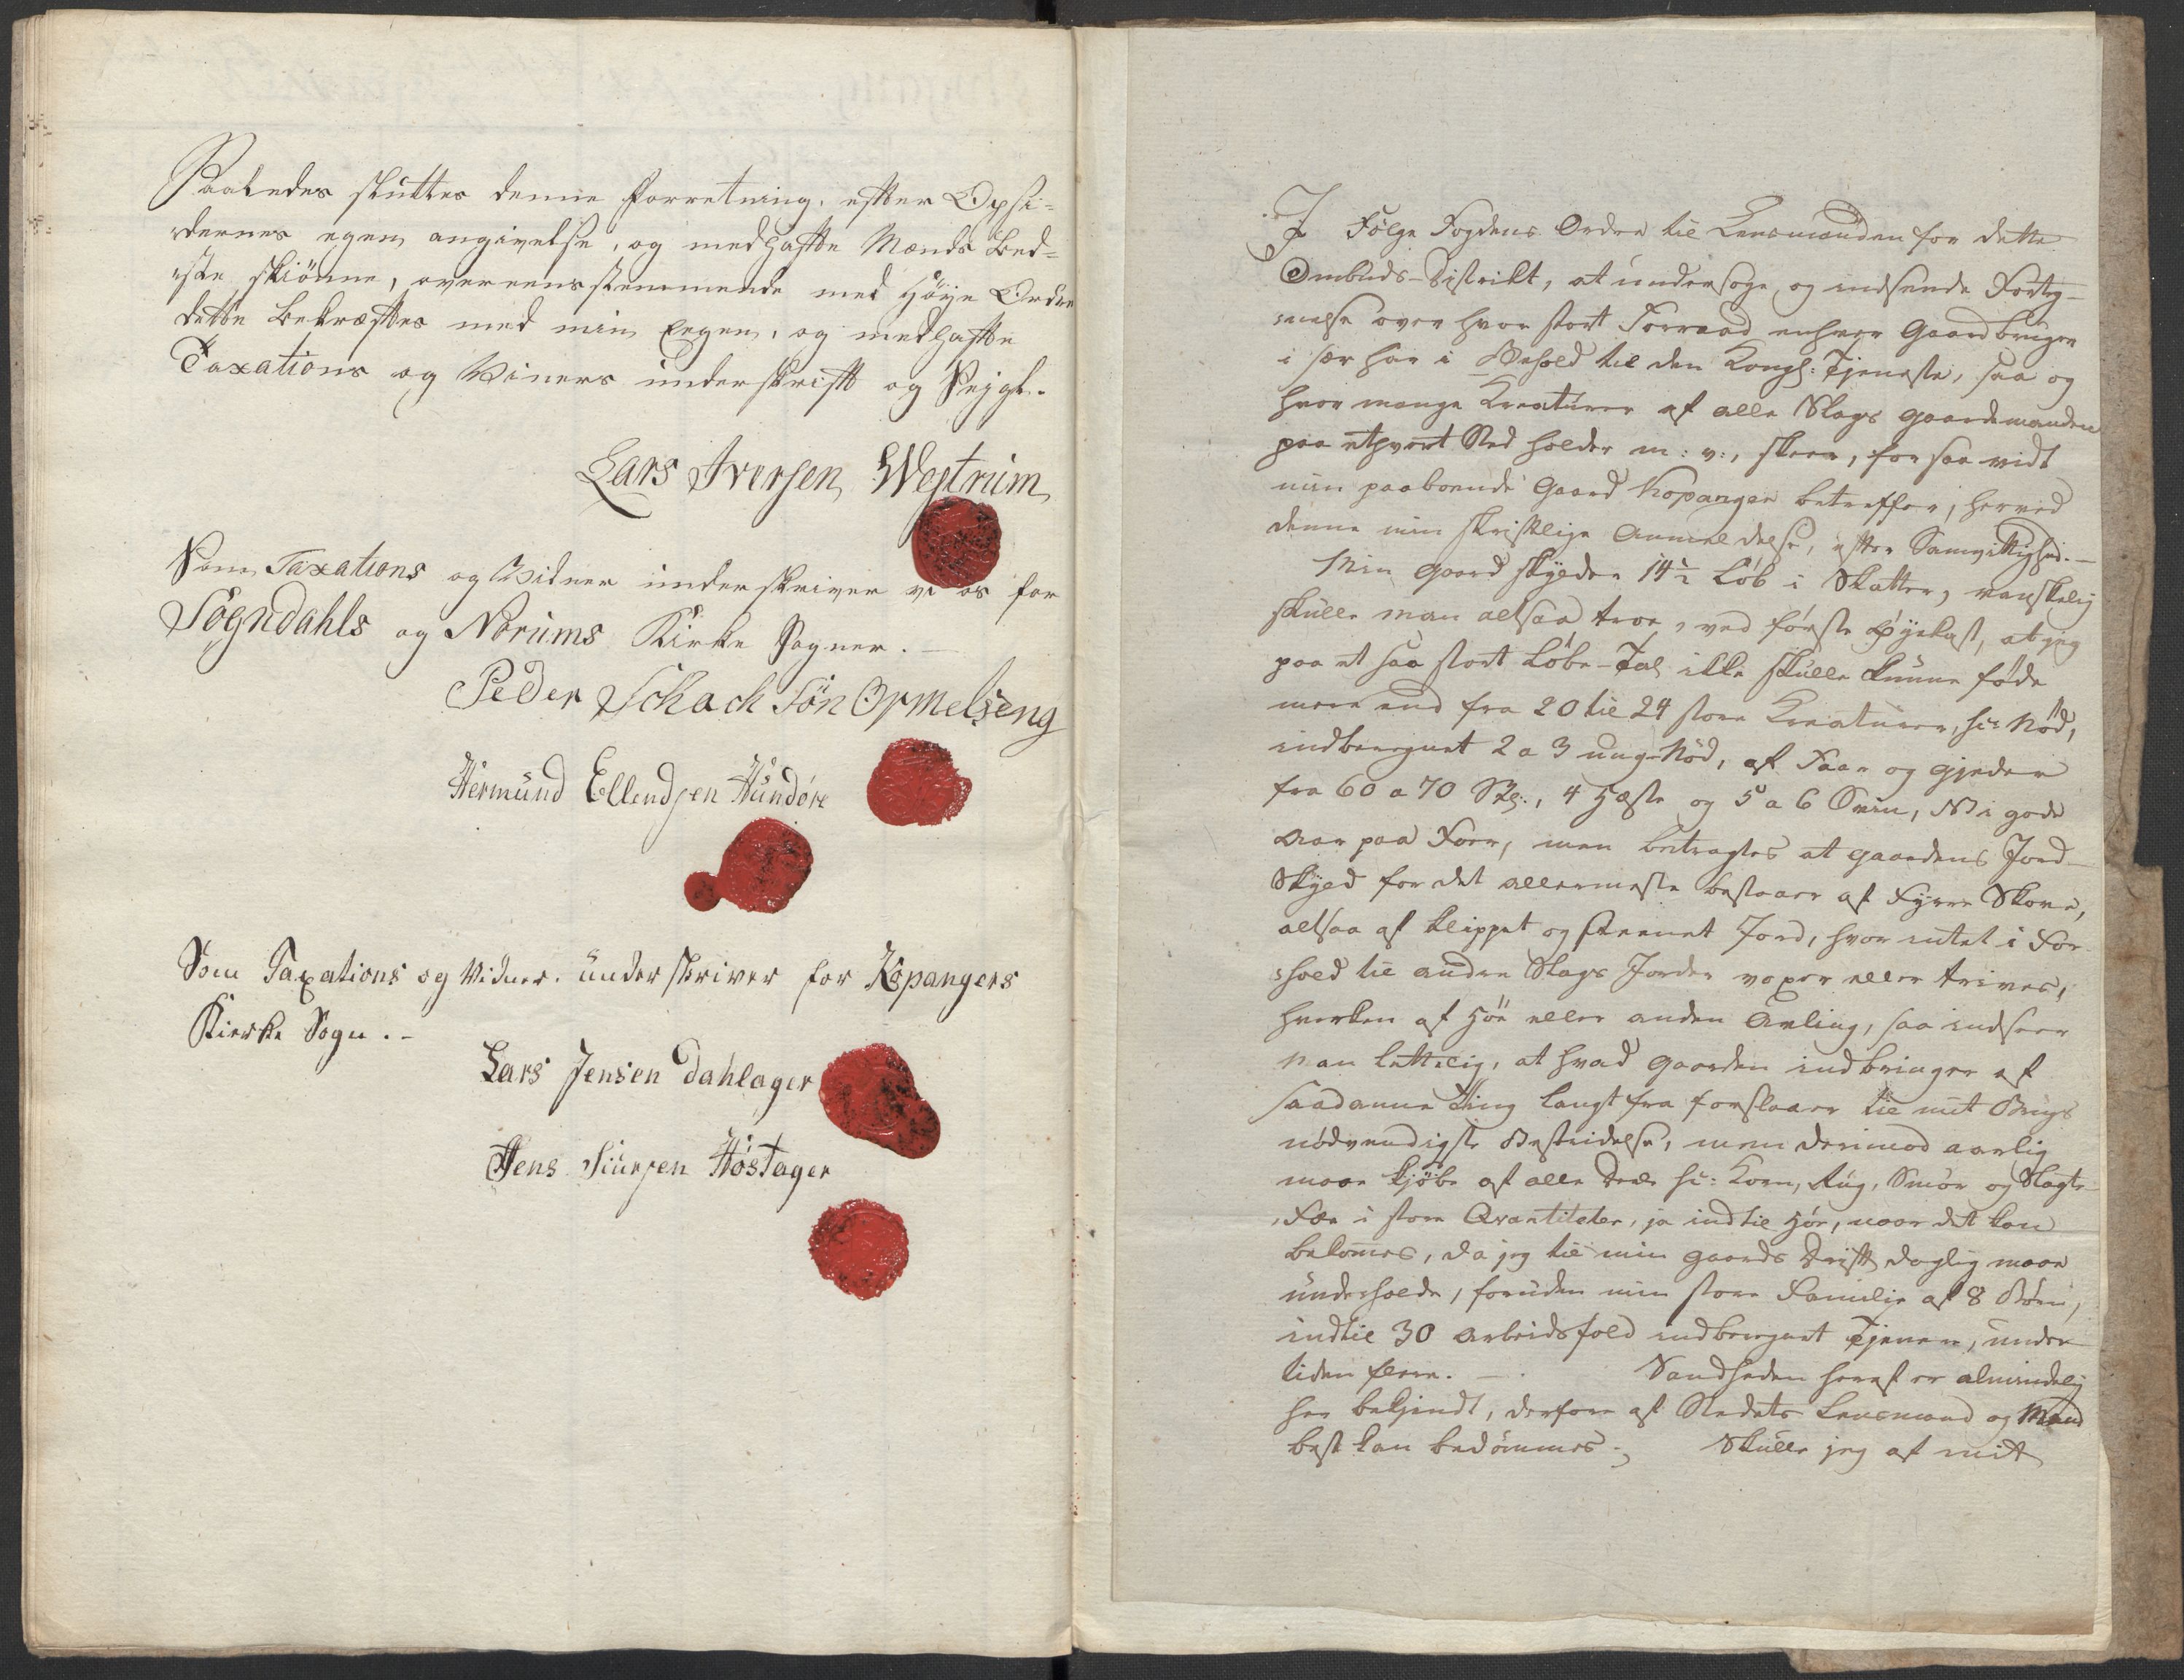 Saaledes sluttes denne Forretning, efter Opsi-
dernes egen angivelse, og medhafte Mænds Bed-
ste skiönne, overeensstemmende med Höye Ordre
dette Bekræftes med min Eegen, og medhafte
Taxations og Viners underskrift og Seigl.
Lars Iversen Westrum
Som Taxations og Vidner underskriver vi os for
Sogndahls og Norums Kirke Sogner.
Peder Schack sön Ormelseng
Hermund Ellendsen Hundere
Som Taxations og Vidner underskriver for Kopangers
Kirke Sogn.
Lars Jensen Dahlager
Jens Siursen Høstager
I Følge Fogdens Ordre til Lensmanden for dette
Ombuds-District, at undersøge og indsende Forteg-
nelse over hvor stort Forraad enhver Gaardbruger
i sær har i Behold til den Kongl: Tjeneste, saa og
hvor mange Kreaturer af alle Slags Gaardmanden
paa ethvert Sted holder m: v:, skeer, for saa vidt
min paaboende Gaard Kopanger betreffer, herved
denne min skriftlige Anmeldelse, efter Samvittighed.-
Min Gaard skylder 14½ Løb i Skatter, vanskelig
skulle man altsaa troe, ved første Øyekast, at jeg
paa et saa stort Løbe-Tal ikke skulle kunne føde
mere end fra 20 til 24 store Kreaturer, sc: Nød,
indberegnet 2 a 3 ung-Nød, af Faar og Gjeder
fra 60 a 70 Stk:, 4 Hæste og 5 a 6 Sviin, NB i gode
Aar paa Foer, men betragtes at Gaardens Jord-
Skyld for det allermeste bestaaer af Fyrre Skove,
altsaa af klippet og steenet Jord, hvor intet i For-
hold til andre Slags Jorder voxer eller trives,
hverken af Høe eller anden Avling, saa indseer
man lettelig, at hvad Gaarden indbringer af
saadanne Ting langt fra forslaaer til mit Brugs
nødvendigste Bestridelse, men derimod aarlig
maae kjøbe af alle Dele sc: Korn, Rug, Smør og Slagte-
Fæe i store Qvantiteter, ja indtil Høe, naar det kan
bekomes, da jeg til min Gaards Drift daglig maae
underholde, foruden min store Familie af 8 Børn,
indtil 30 Arbeidsfolk indberegnet Tjenere, under-
tiden flere. - Sandheden heraf er almindelig
her bekjendt, derfore af Stedets Lensmand og Mænd
best kan bedømmes; Skulle jeg af mit